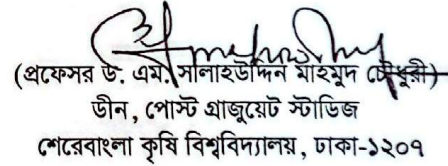 (প্রফেসর ড. এম. সালাহউদ্দিন মাহমুদ চৌধুরী)
ডীন, পোস্ট গ্রাজুয়েট স্টাডিজ
শেরেবাংলা কৃষি বিশ্ববিদ্যালয়, ঢাকা-১২০৭